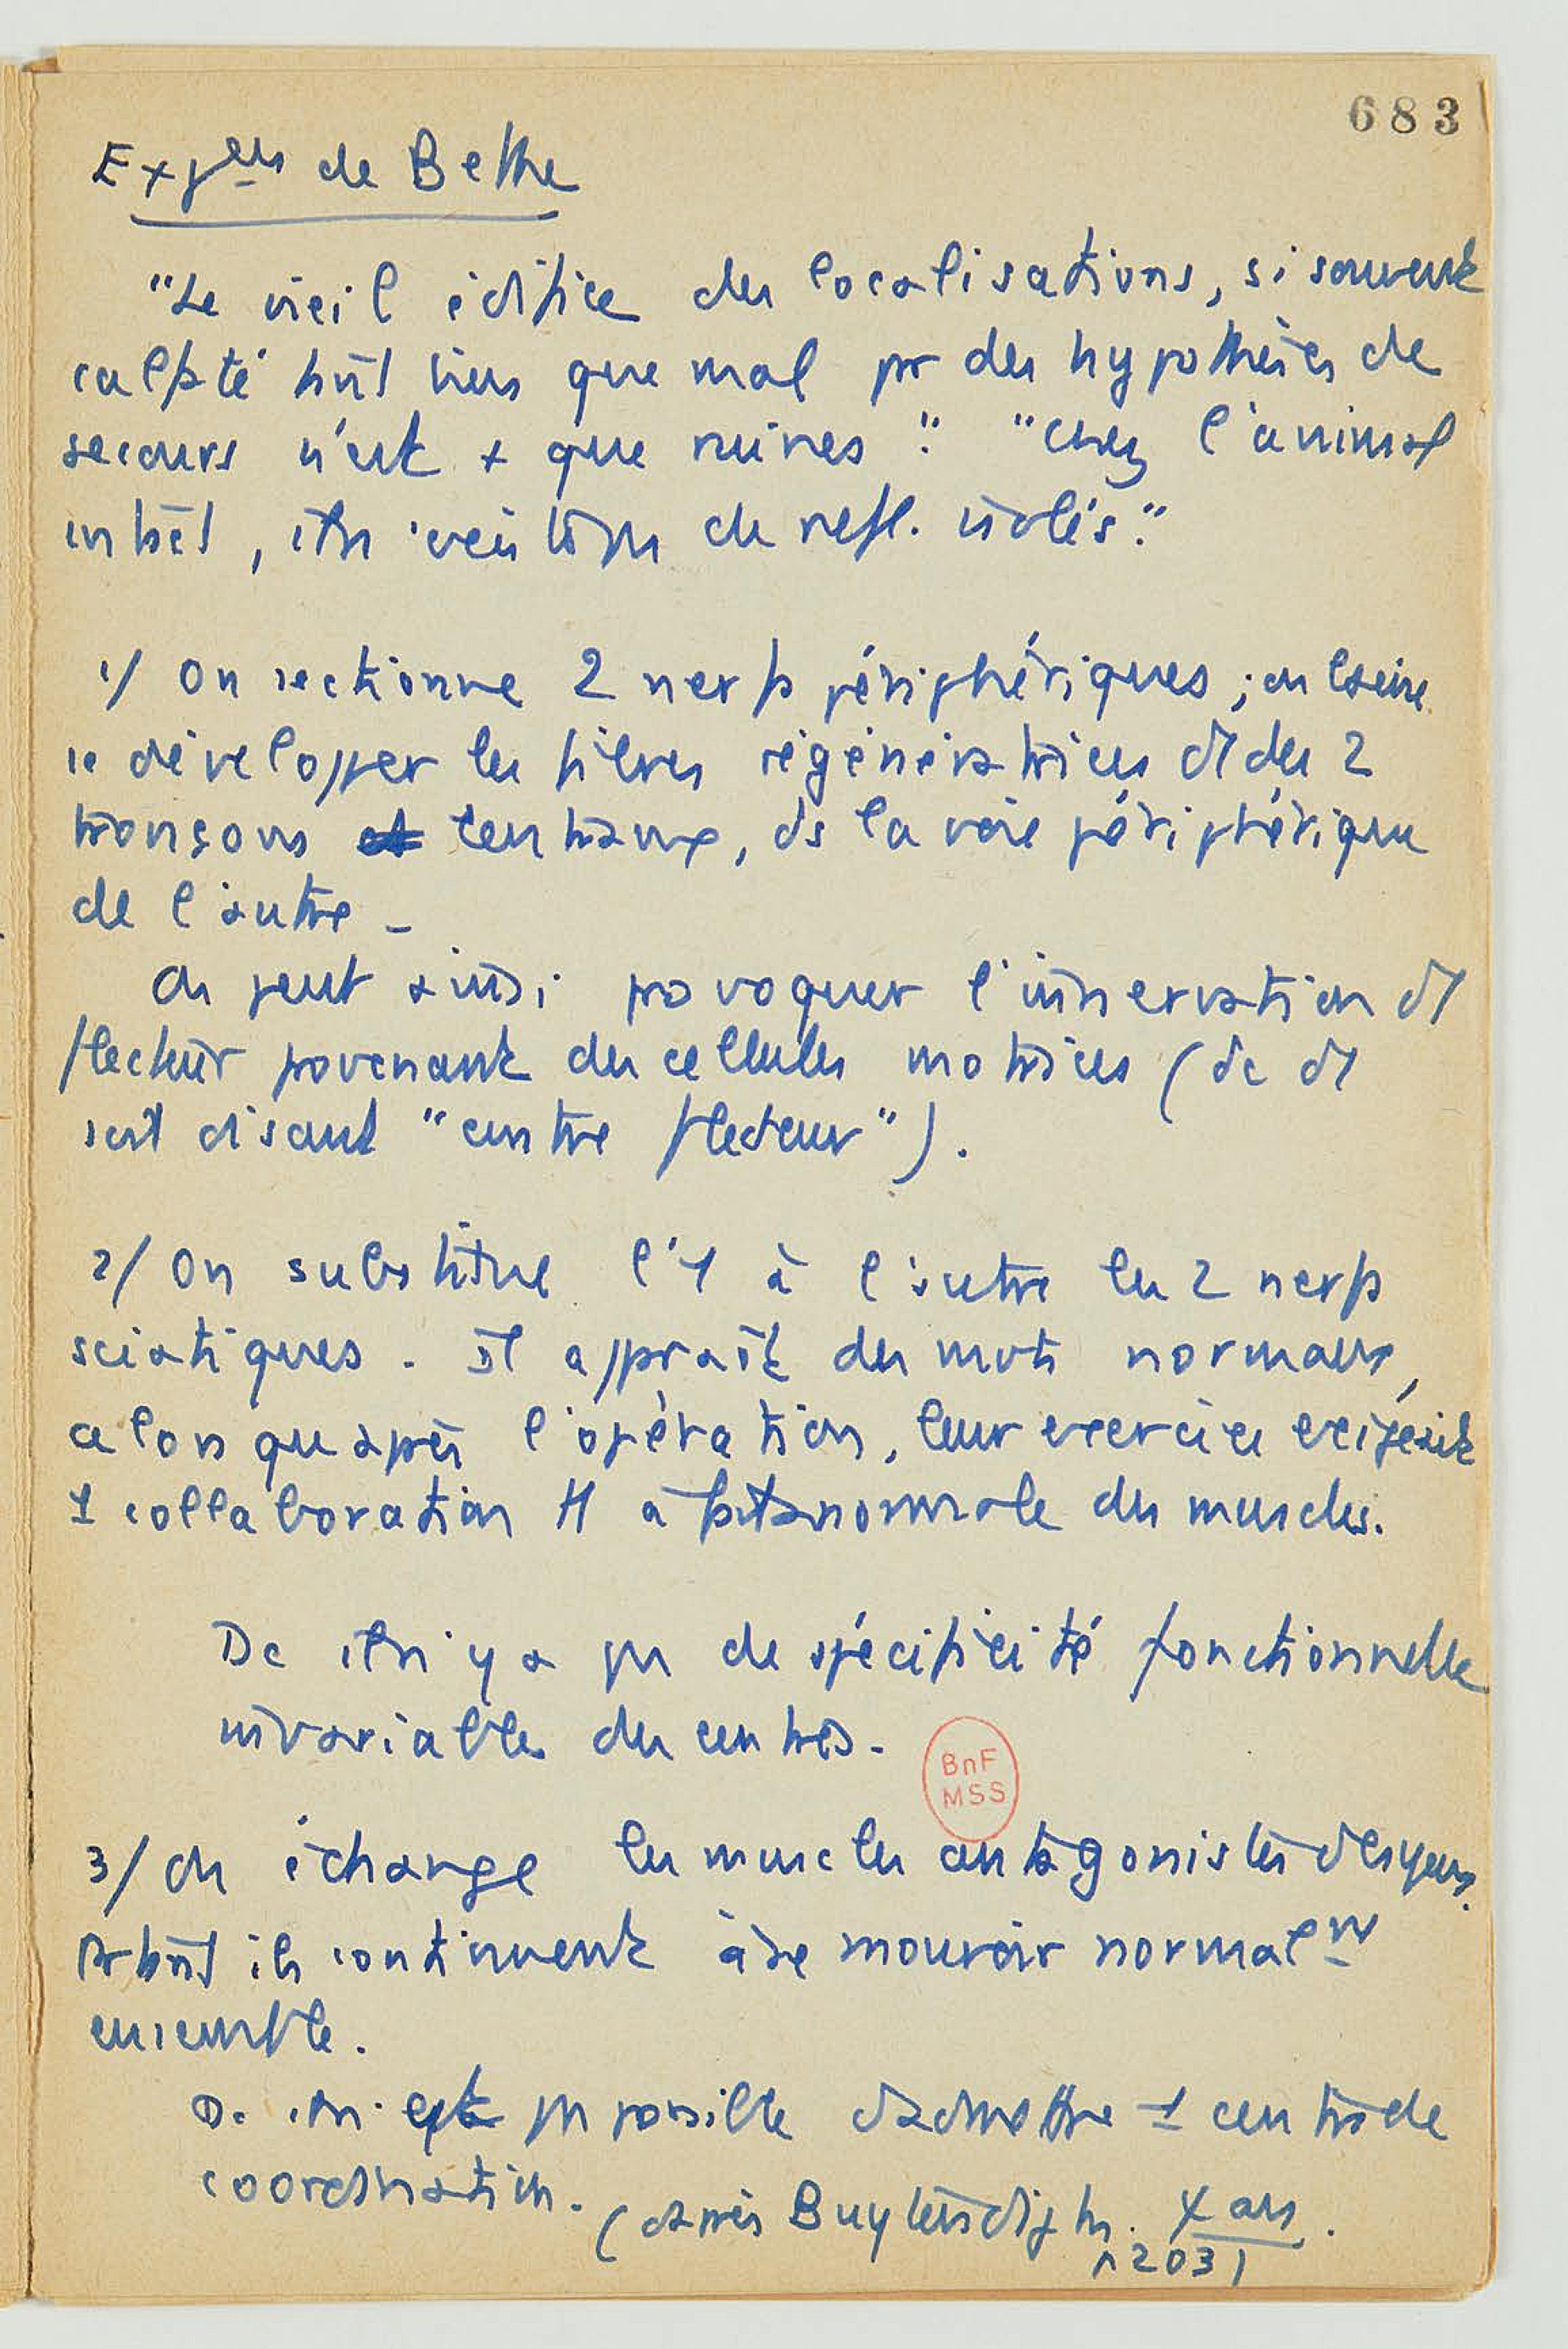 683
Exp^ces de Bethe
"Le vieil édifice des localisations, si souvent
calfaté tant bien que mal par des hypothèses de
secours n'est + que ruines". "Chez l'animal
intact, il n' pas de refl. isolés."
1/ On sectionne 2 nerfs périphériques ; on laisse
se développer les fibres régénératrices d'1 des 2
tronçons centraux, ds la voie périphérique
de l'autre -
On peut ainsi provoquer l'innervation d'1
flecteur provenant des cellules motrices (dc d'1
soit disant "centre flecteur").
2/ On substitue l'1 à l'autre les 2 nerfs
sciatiques. Il apparaît des mvts normaux,
alors qu'après l'opération, leur exercice exigeait
1 collaboration tt à fait anormale des muscles.
Dc il n'y a pas de spécificité fonctionnelle
invariable des centres.
BnF
MSS
3/ On échange les muscles antagonistes des yeux.
ils continuent à se mouvoir normal^nt
ensemble.
Dc il n'est pas possible d'admettre 1 centre de
coordination. (après Buytendijk
203)